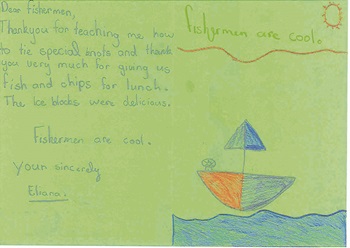 Dear fishermen,
Thankyou for teaching me how
to tie special knots and thank
you very much for giving us
fish and chips for lunch.
The ice blocks were delicious.
Fishermen are cool.
your sincerely
Eliana.
fishermen are cool.